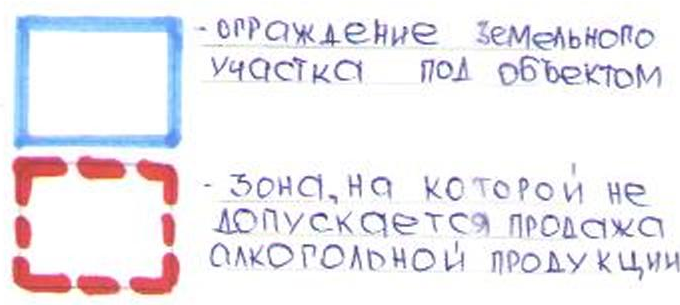 - ограждение земельного
участка под объектом
- зона, на которой не
допускается продажа
алкогольной продукции